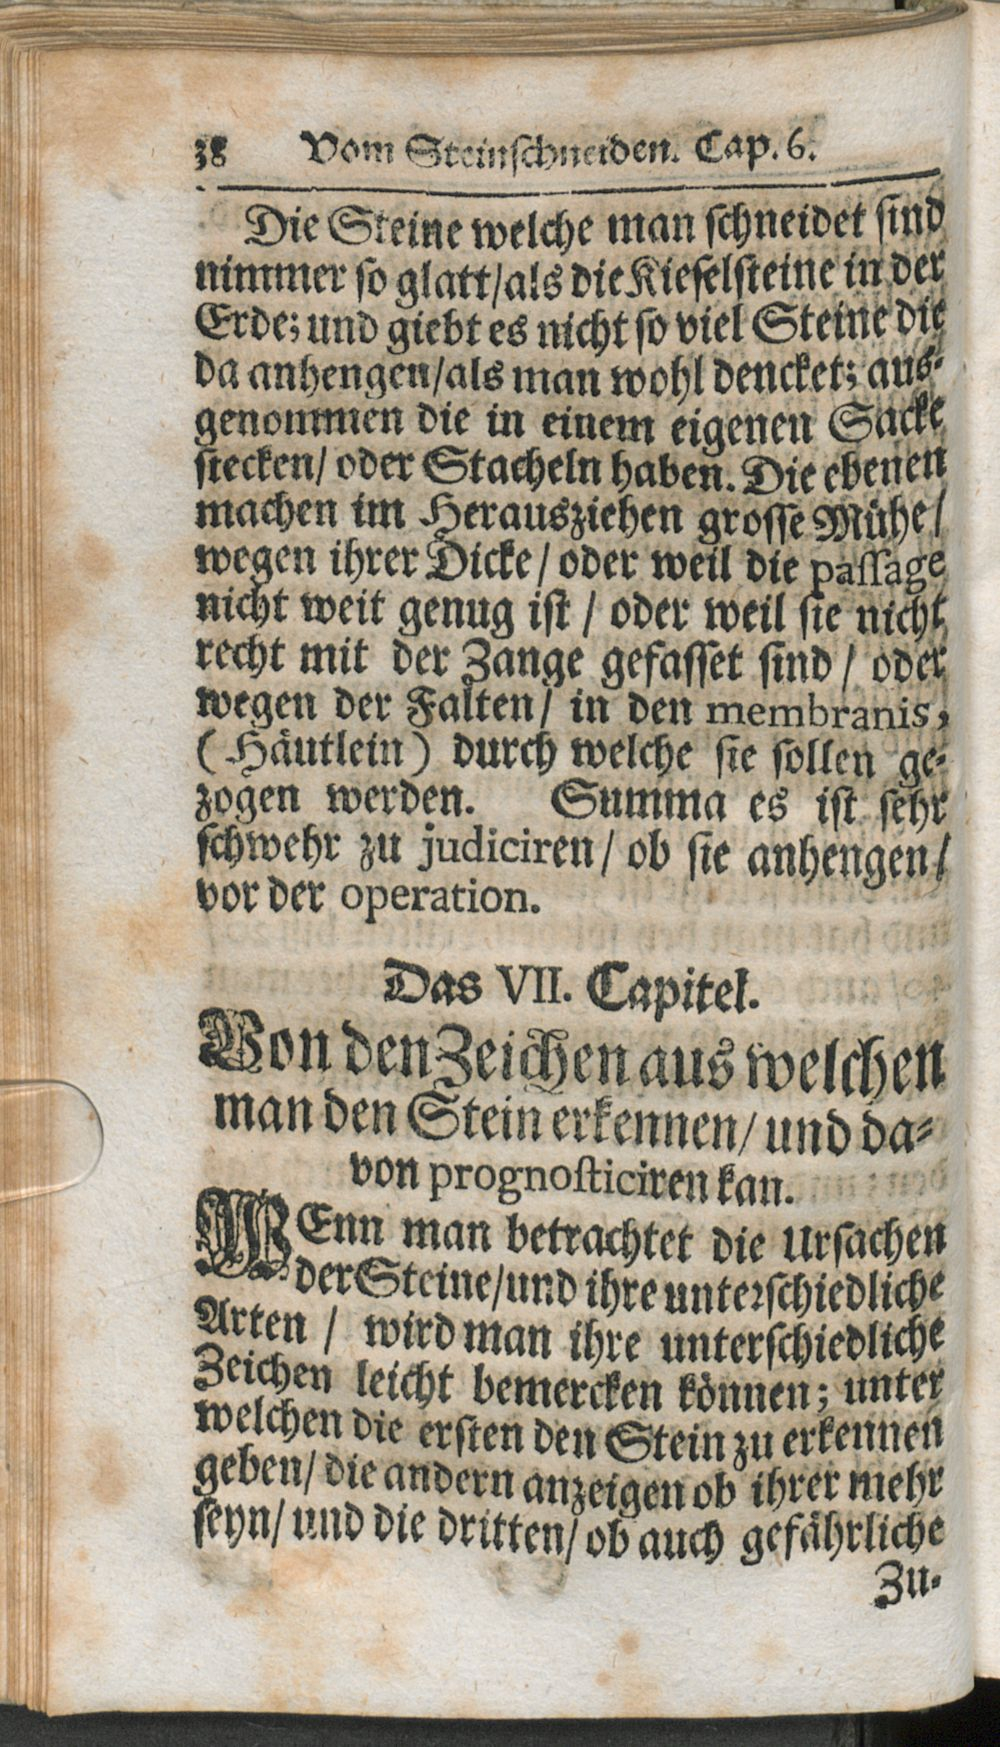 38 Vom Steinschneiden. Cap. 6.
Die Steine welche man schneidet sind
nimmer so glatt/als die Kieselsteine in der
Erde; und giebt es nicht so viel Steine die
da anhengen/als man wohl dencket; aus-
genommen die in einem eigenen Sacke
stecken/ oder Stacheln haben. Die ebenen
machen im Herausziehen grosse Mühe/
wegen ihrer Dicke / oder weil die passage
nicht weit genug ist / oder weil sie nicht
recht mit der Zange gefasset sind / oder
wegen der Falten/ in den membranis,
(Häutlein) durch welche sie sollen ge-
zogen werden. Summa es ist sehr
schwehr zu judiciren/ ob sie anhengen/
vor der operation.
Das VII. Capitel.
Von den Zeichen aus welchen
man den Stein erkennen/ und da-
von prognosticiren kan.
WEnn man betrachtet die Ursachen
der Steine/und ihre unterschiedliche
Arten / wird man ihre unterschiedliche
Zeichen leicht bemercken können; unter
welchen die ersten den Stein zu erkennen
geben/ die andern anzeigen ob ihrer mehr
seyn/ und die dritten/ ob auch gefährliche
Zu-